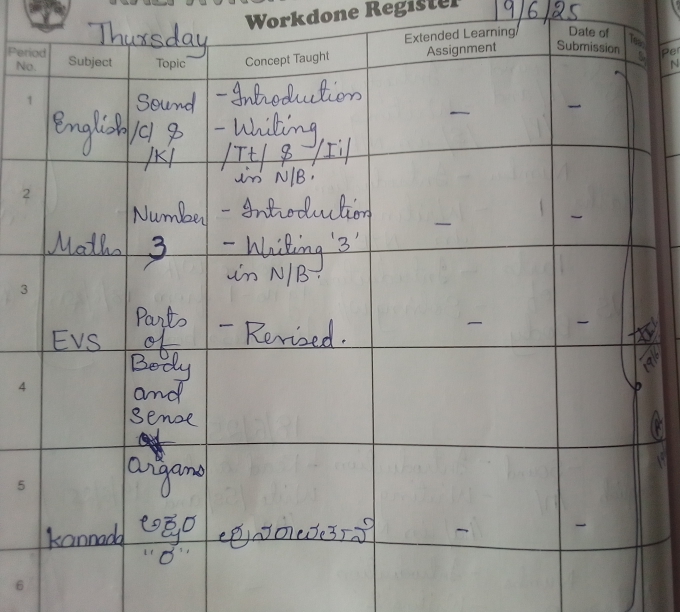 Workdone Register
19/6/25
Thursday
Period No.
Subject
Topic
Concept Taught
Extended Learning/ Assignment
Date of Submission
1
English
Sound
/C/ &
/K/
- Introduction
- Writing
/Tt/ & /Ii/
in N/B.
-
-
2
Maths
Number
3
- Introduction
- Writing '3'
in N/B.
-
-
3
EVS
Parts
of
Body
and
Sense
argans
- Revised.
-
-
4
5
Kannada
ಅಕ್ಷರ
-
-
6